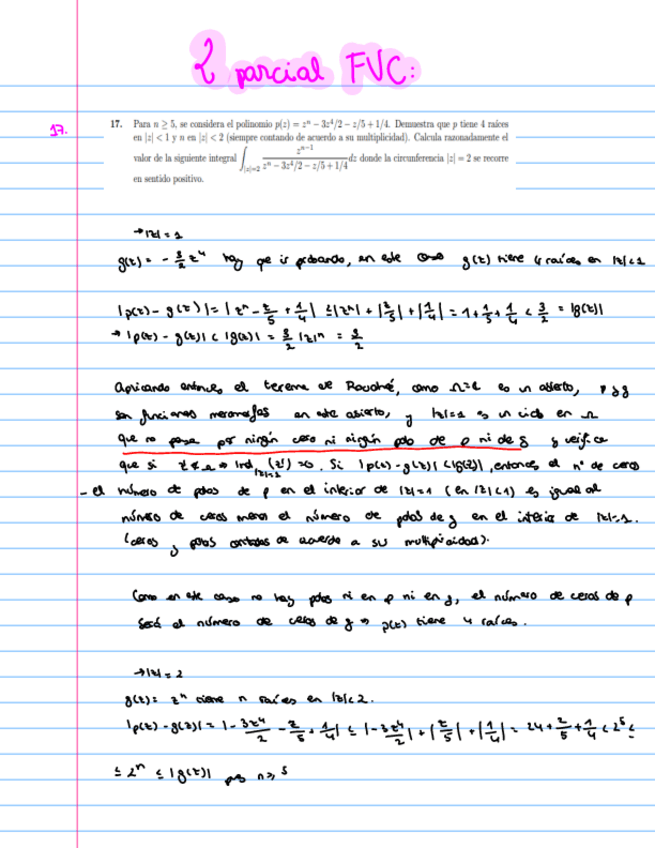 2 parcial FVC:
17.
17. Para n ≥ 5, se considera el polinomio p(z) = zⁿ − 3z⁴/2 − z/5 + 1/4. Demuestra que p tiene 4 raíces
en |z| < 1 y n en |z| < 2 (siempre contando de acuerdo a su multiplicidad). Calcula razonadamente el
valor de la siguiente integral ∫_{|z|=2} zⁿ⁻¹ / (zⁿ − 3z⁴/2 − z/5 + 1/4) dz donde la circunferencia |z| = 2 se recorre
en sentido positivo.
→ |z| = 1
g(z) = − 3/2 z⁴ hay que ir probando, en este caso g(z) tiene 4 raíces en |z|<1
|p(z) − g(z)| = |zⁿ − z/5 + 1/4| ≤ |zⁿ| + |z/5| + |1/4| = 1 + 1/5 + 1/4 < 3/2 = |g(z)|
→ |p(z) − g(z)| < |g(z)| = 3/2 |z|ⁿ = 3/2
Aplicando entonces el teorema de Rouché, como Ω=ℂ es un abierto, p y g
son funciones meromorfas en este abierto, y |z|=1 es un ciclo en Ω
que no pasa por ningún cero ni ningún polo de p ni de g y verifica
que si z ∉ Ω ⇒ Ind_{|z|=1} (z) = 0. Si |p(z) − g(z)| < |g(z)|, entonces el nº de ceros
- el número de polos de p en el interior de |z|=1 (en |z|<1) es igual al
número de ceros menos el número de polos de g en el interior de |z|=1.
(ceros y polos contados de acuerdo a su multiplicidad).
Como en este caso no hay polos ni en p ni en g, el número de ceros de p
será el número de ceros de g ⇒ p(z) tiene 4 raíces.
→ |z| = 2
g(z) = zⁿ tiene n raíces en |z|<2.
|p(z) − g(z)| = |− 3z⁴/2 − z/5 + 1/4| ≤ |− 3z⁴/2| + |z/5| + |1/4| = 24 + 2/5 + 1/4 < 2⁵ ≤
≤ 2ⁿ ≤ |g(z)| pues n ≥ 5